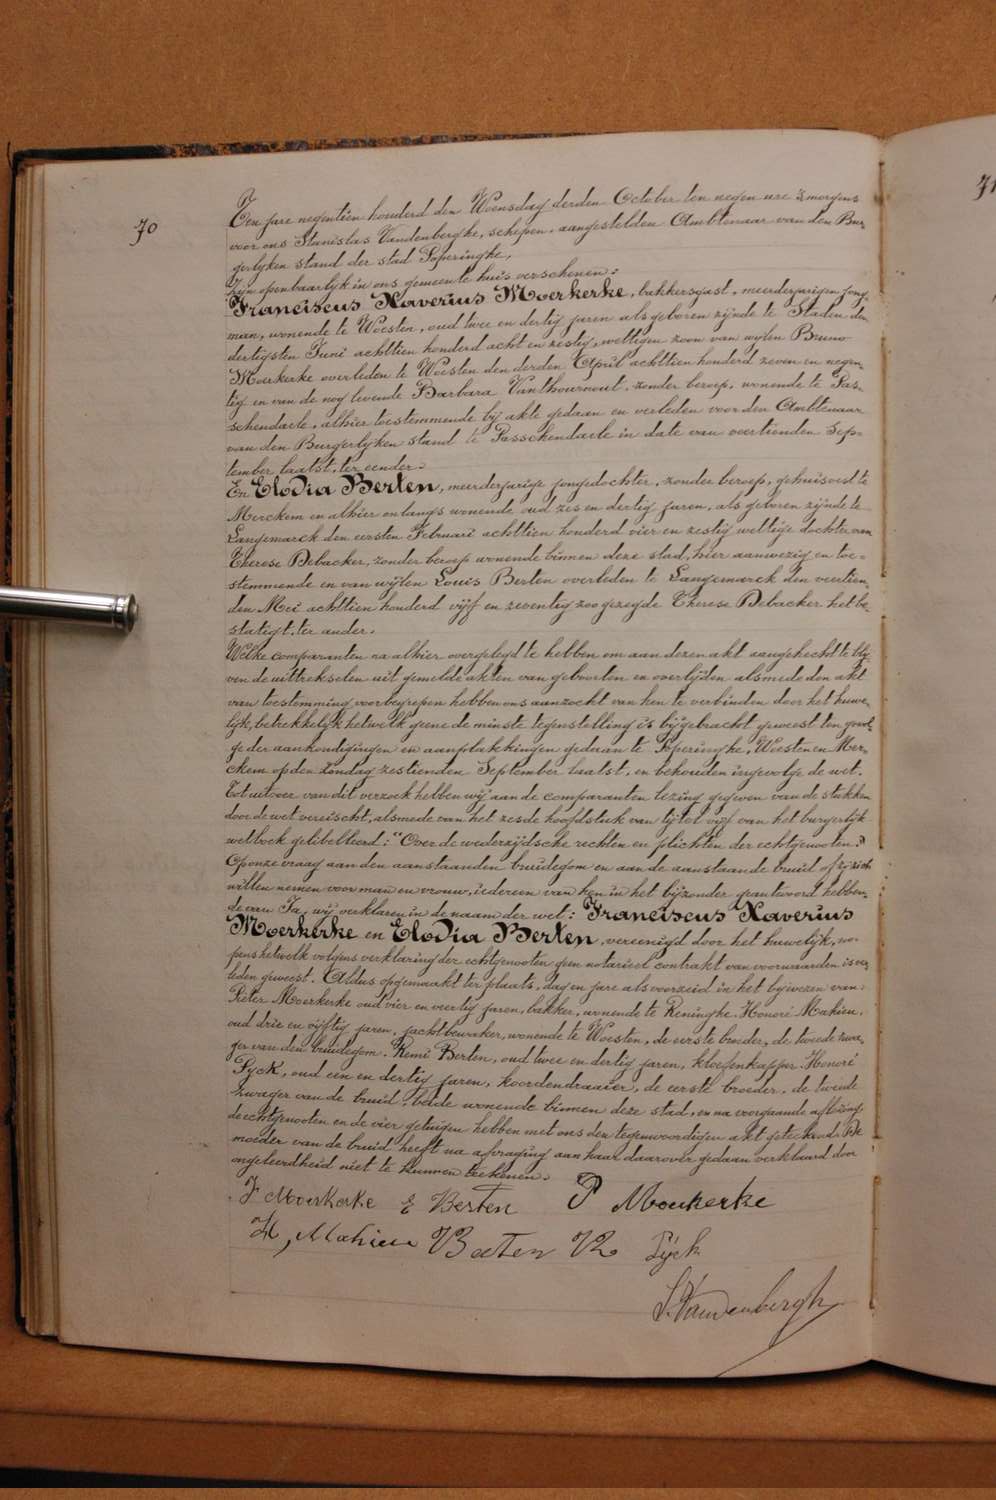 70
71
Ten jare negentien honderd den Woensdag derden October ten negen ure 's morgens
voor ons Stanislas Vandenberghe, schepen, aangestelden Ambtenaar van den Bur-
gerlyken stand der stad Poperinghe,
Zyn openbaarlyk in ons gemeente huis verschenen:
Franciscus Xaverius Moerkerke, bakkersgast, meerderjarigen jong-
man, wonende te Woesten, oud twee en dertig jaren als geboren zijnde te Staden den
dertigsten Juni achttien honderd acht en zestig, wettigen zoon van wylen Bruno
Moerkerke overleden te Woesten den derden April achttien honderd zeven en negen-
tig en van de nog levende Barbara Vanthournout, zonder beroep, wonende te Pas-
schendaele, alhier toestemmende bij akte gedaan en verleden voor den Ambtenaar
van den Burgerlyken stand te Passchendaele in date van veertienden Sep-
tember laatst, ter eender.
En Elodia Berten, meerderjarige jongedochter, zonder beroep, gehuisvest te
Merckem en alhier onlangs wonende oud zes en dertig jaren, als geboren zijnde te
Langemarck den eersten Februari achttien honderd vier en zestig wettige dochter van
Therese Debacker, zonder beroep wonende binnen deze stad, hier aanwezig en toe-
stemmende en van wijlen Louis Berten overleden te Langemarck den veertien-
den Mei achttien honderd vijf en zeventig zoo gezegde Therese Debacker het be-
statigt, ter ander.
Welke comparanten na alhier overgelegd te hebben om aan dezen akt aangehecht te bly-
ven de uittrekselen uit gemelde akten van geboorten en overlijden alsmede den akt
van toestemming voorbegrepen hebben ons aanzocht van hen te verbinden door het huwe-
lijk, betrekkelijk hetwelk geene de minste tegenstelling is bijgebracht geweest ten gevol-
ge der aankondigingen en aanplakkingen gedaan te Poperinghe, Woesten en Mer-
ckem op den Zondag zestienden September laatst, en behouden ingevolge de wet.
Tot uitvoer van dit verzoek hebben wij aan de comparanten lezing gegeven van de stukken
door de wet vereischt, alsmede van het zesde hoofdstuk van tytel vijf van het burgerlijk
wetboek gelibelleerd: "Over de wederzijdsche rechten en plichten der echtgenooten."
Op onze vraag aan den aanstaanden bruidegom en aan de aanstaande bruid of zij zich
willen nemen voor man en vrouw, iedereen van hen in het bijzonder geantwoord hebben-
de van Ja, wij verklaren in de naam der wet: Franciscus Xaverius
Moerkerke en Elodia Berten, vereenigd door het huwelijk, no-
pens hetwelk volgens verklaring der echtgenooten geen notarieel contrakt van voorwaarden is ver-
leden geweest. Aldus opgemaakt ter plaats, dag en jare als voorzeid in het bijwezen van:
Pieter Moerkerke oud vier en veertig jaren, bakker, wonende te Reninghe. Honoré Mahieu,
oud drie en vijftig jaren, jachtbewaker, wonende te Woesten, de eerste broeder, de tweede zwa-
ger van den bruidegom. Remi Berten, oud twee en dertig jaren, kloefenkapper. Honoré
Pyck, oud een en dertig jaren, koordendraaier, de eerste broeder, de tweede
zwager van de bruid, beide wonende binnen deze stad, en na voorgaande aflezing,
de echtgenooten en de vier getuigen hebben met ons den tegenwoordigen akt geteekend. De
moeder van de bruid heeft na afvraging aan haar daarover gedaan verklaard door
ongeleerdheid niet te kunnen teekenen.
F Moerkerke E Berten P Moerkerke
H, Mahieu Berten R Pyck
S. Vandenbergh